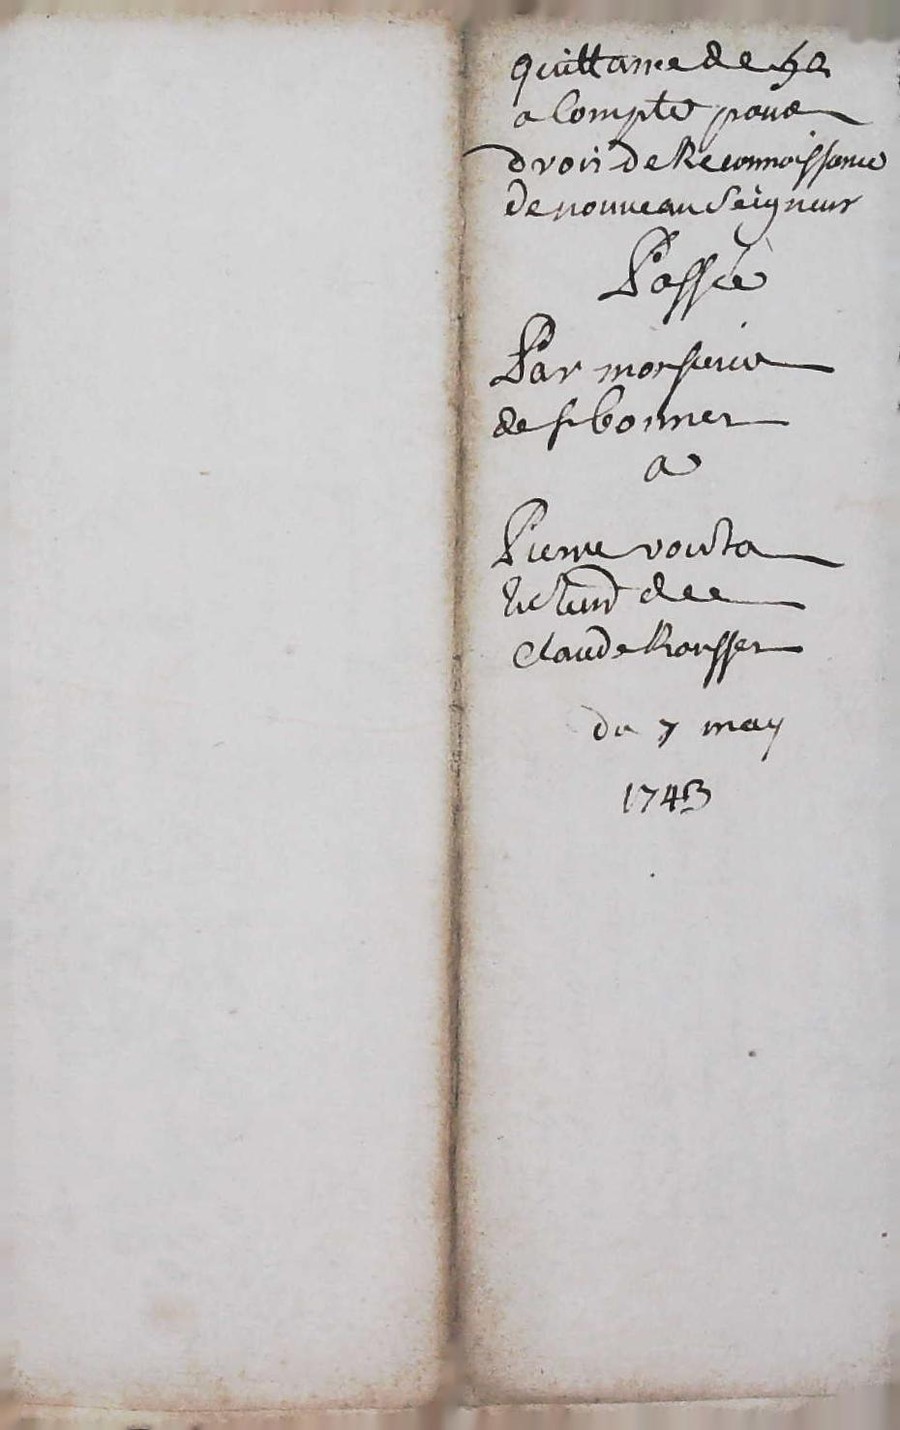 quittance de
a Compte pour
droit de Reconnoissance
de nouveau Seigneur
Passée
Par monsieur
de st bonnet
a
Pierre vouta
de
Claude Rousset
du 7 may
1743